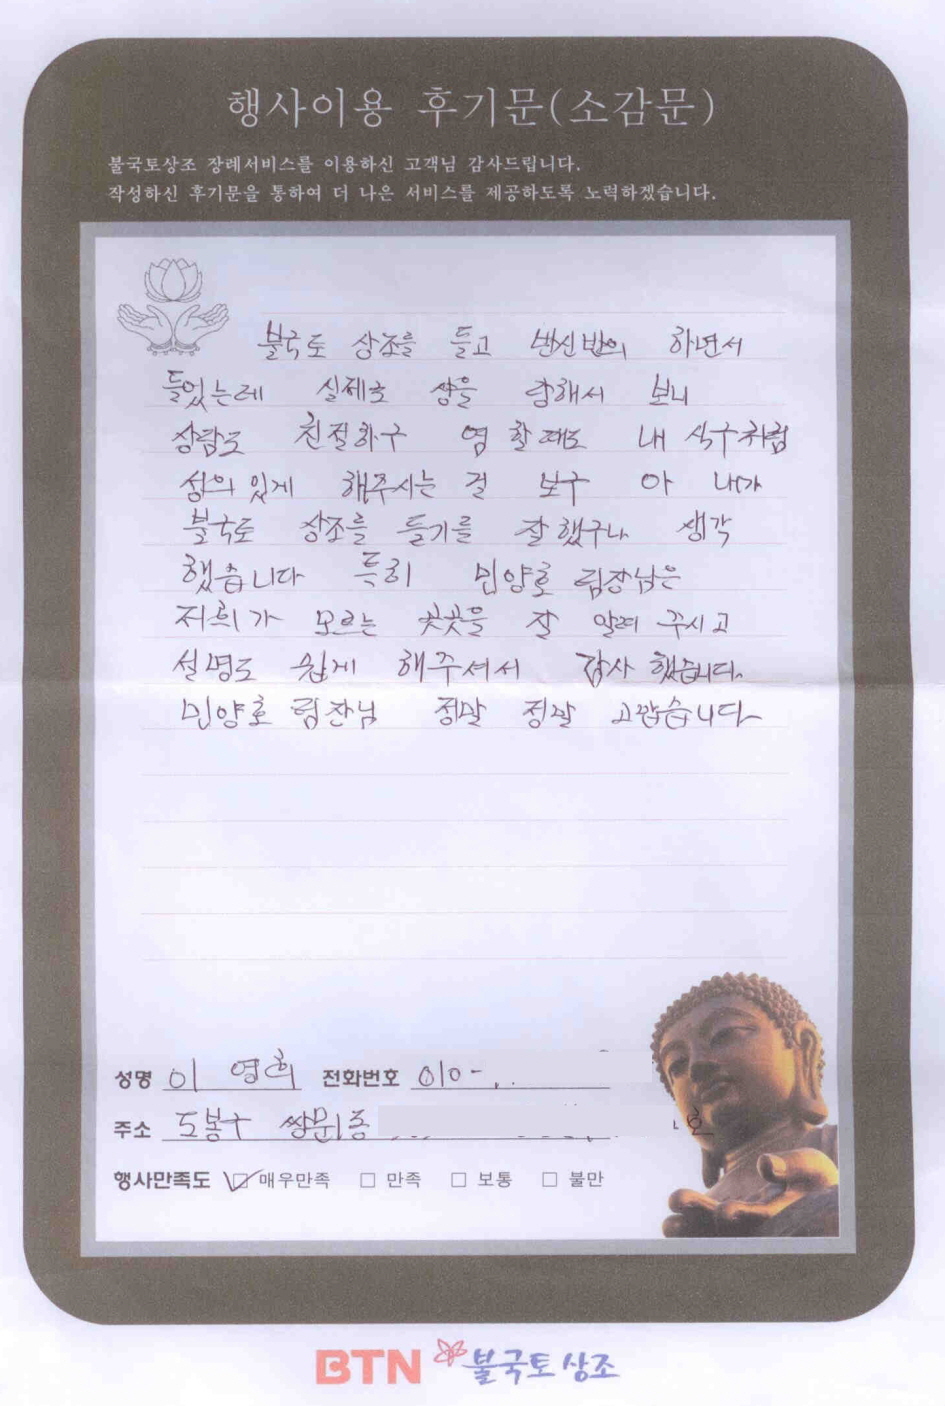 행사이용 후기문(소감문)
불국토상조 장례서비스를 이용하신 고객님 감사드립니다.
작성하신 후기문을 통하여 더 나은 서비스를 제공하도록 노력하겠습니다.
불국토 상조를 들고 반신반의 하면서
들었는데 실제로 상을 당해서 보니
상담도 친절하구 염 할때도 내 식구처럼
성의 있게 해주시는 걸 보구 아 내가
불국토 상조를 들기를 잘 했구나 생각
했습니다 특히 민양호 팀장님은
저희가 모르는 곳곳을 잘 알려 주시고
설명도 쉽게 해주셔서 감사 했습니다.
민양호 팀장님 정말 정말 고맙습니다
성명 이 영희 전화번호 010-
주소 도봉구 쌍문1동 호
행사만족도 매우만족 만족 보통 불만
BTN 불국토상조